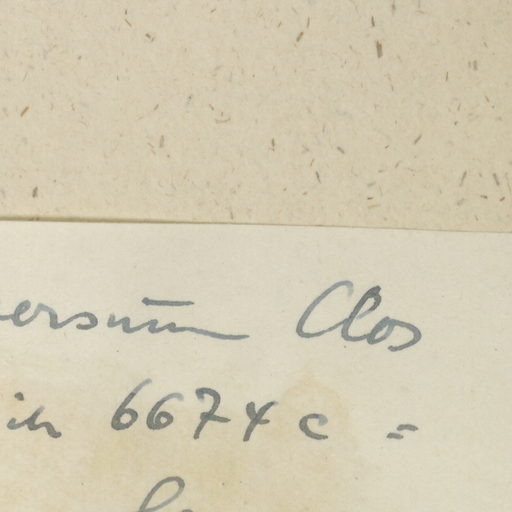 ersum Clos
6674 c =